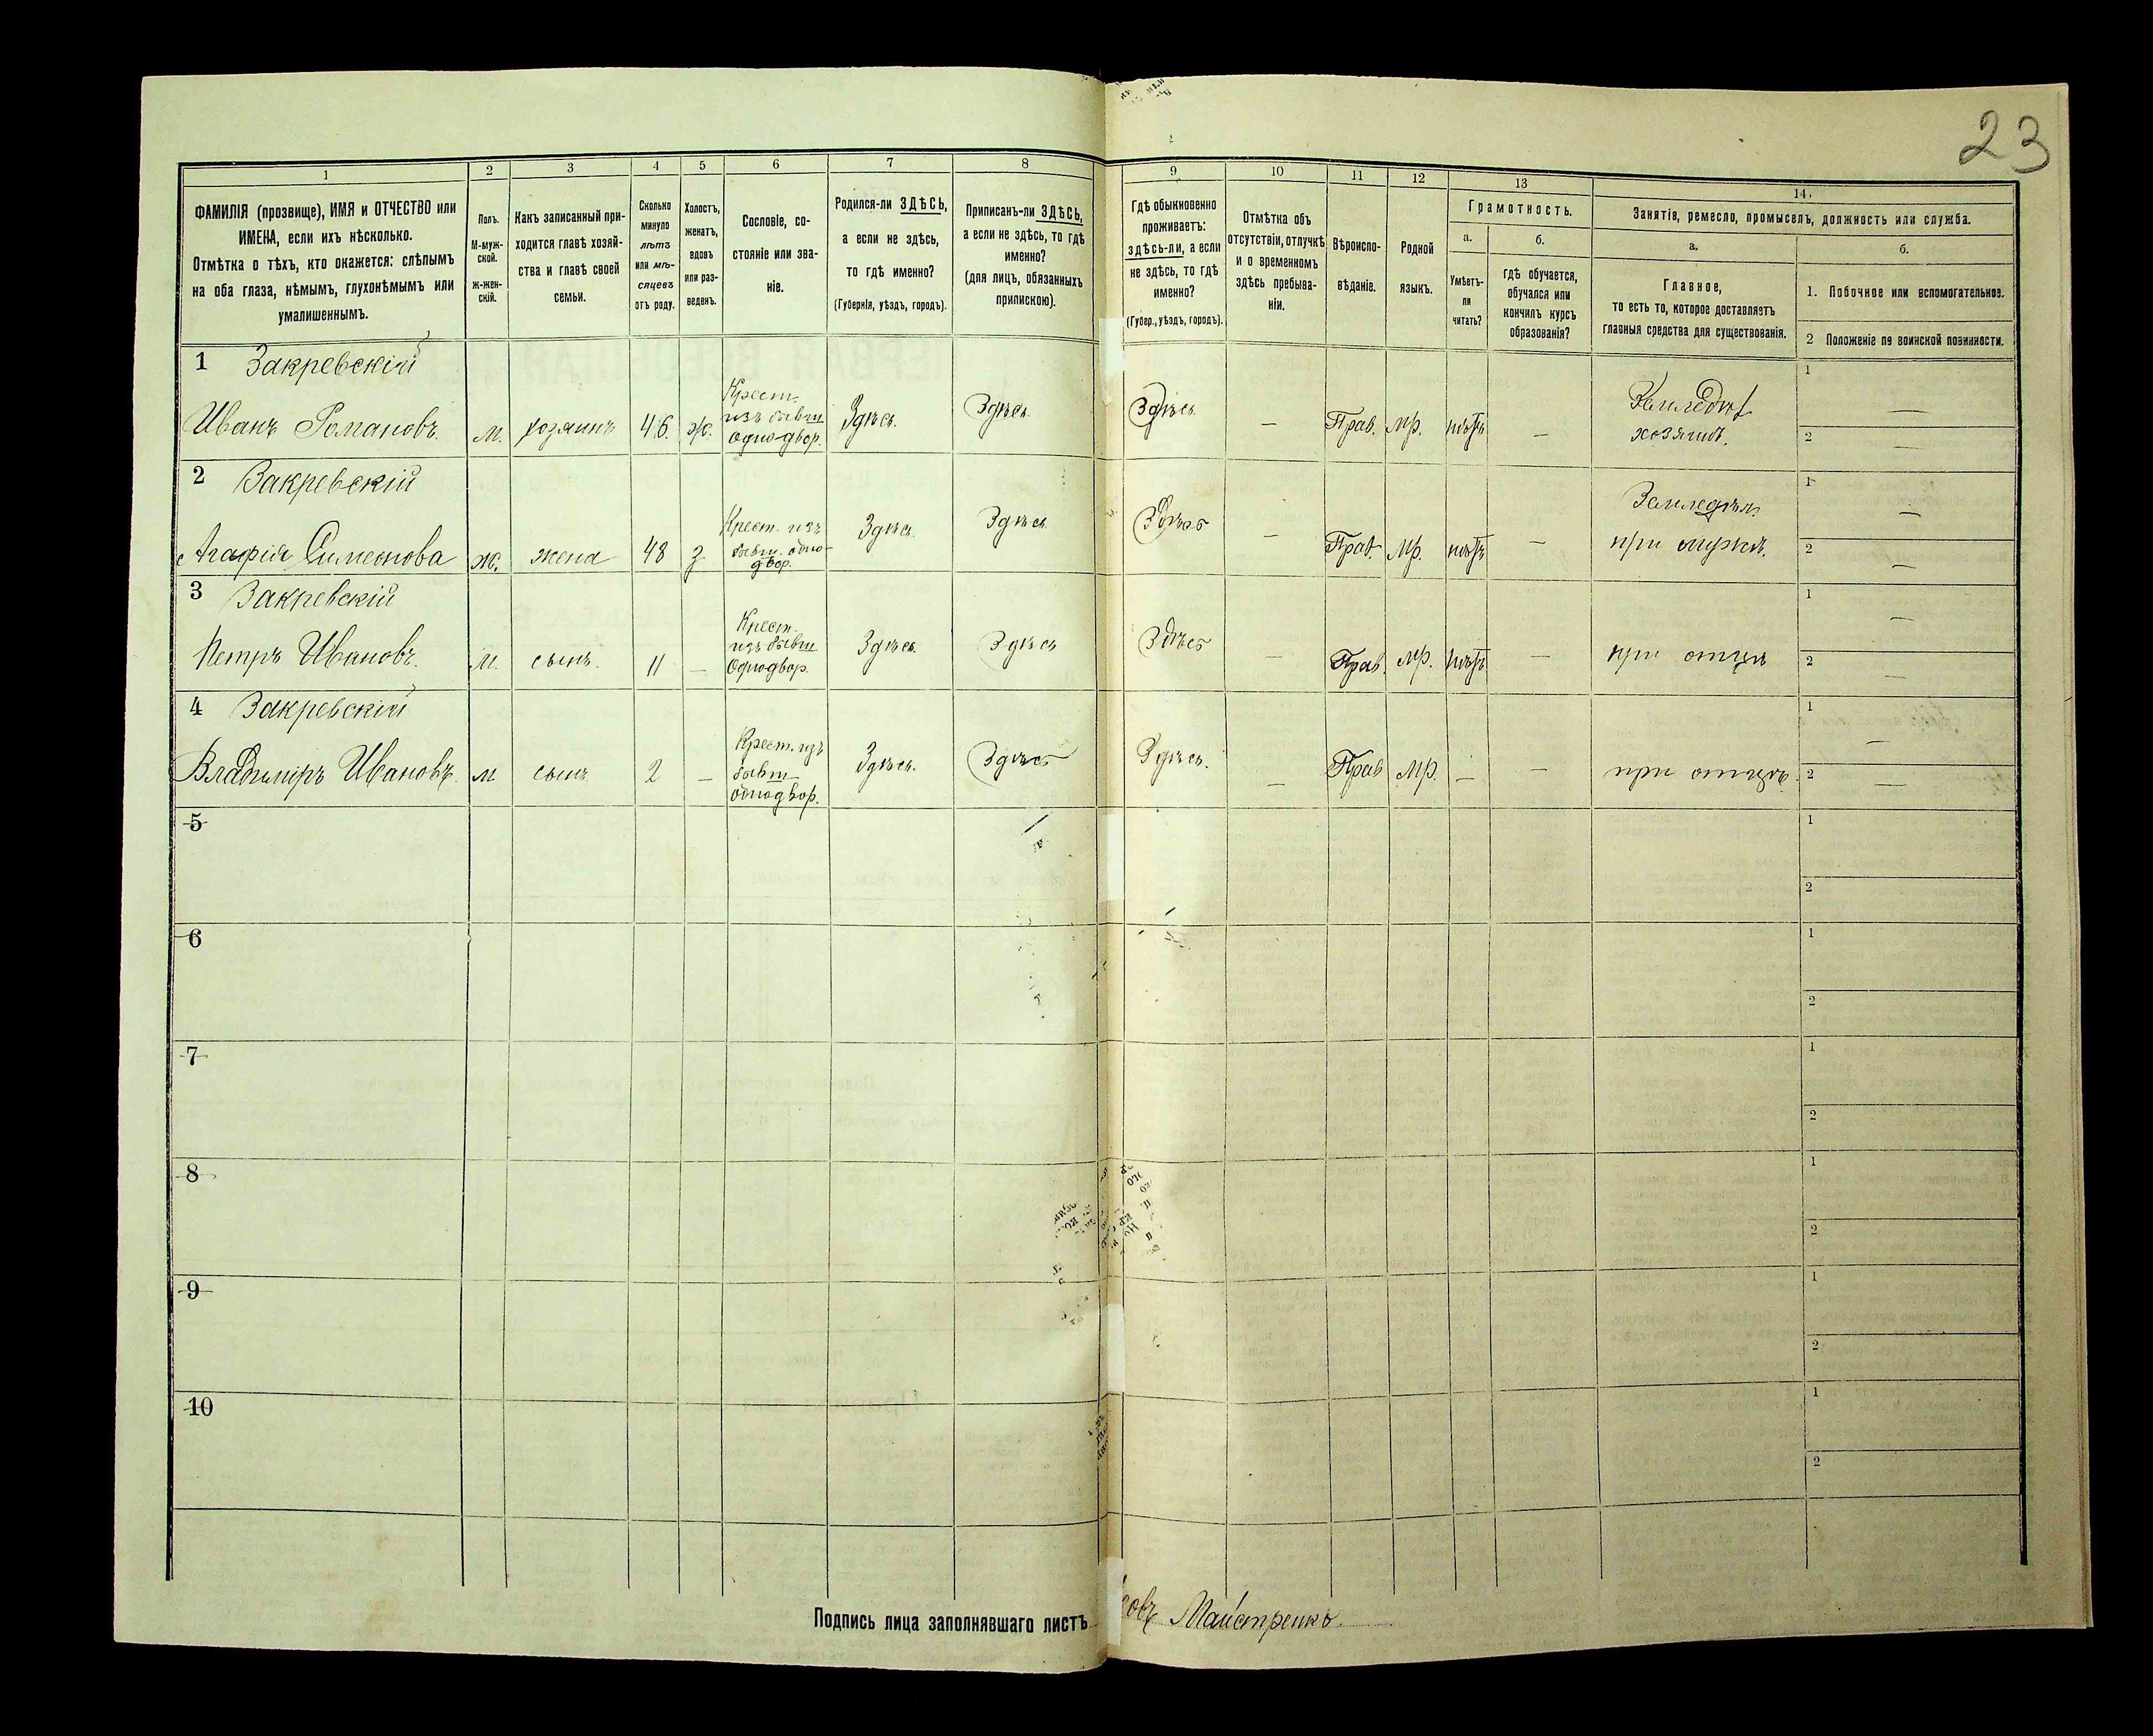 23
1
2
3
4
5
6
7
8
9
10
11
12
13
14.
ФАМИЛІЯ (прозвище), ИМЯ и ОТЧЕСТВО или
ИМЕНА, если ихъ нѣсколько.
Отмѣтка о тѣхъ, кто окажется: слѣпымъ
на оба глаза, нѣмымъ, глухонѣмымъ или
умалишеннымъ.
Полъ.
М-муж-
ской.
ж-жен-
скій.
Какъ записанный при-
ходится главѣ хозяй-
ства и главѣ своей
семьи.
Сколько
минуло
лѣтъ
или мѣ-
сяцевъ
отъ роду.
Холостъ,
женатъ,
вдовъ
или раз-
веденъ.
Сословіе, со-
стояніе или зва-
ніе.
Родился-ли ЗДѢСЬ,
а если не здѣсь,
то гдѣ именно?
(Губернія, уѣздъ, городъ).
Приписанъ-ли ЗДѢСЬ,
а если не здѣсь, то гдѣ
именно?
(для лицъ, обязанныхъ
припискою).
Гдѣ обыкновенно
проживаетъ:
здѣсь-ли, а если
не здѣсь, то гдѣ
именно?
(Губер., уѣздъ, городъ).
Отмѣтка объ
отсутствіи, отлучкѣ
и о временномъ
здѣсь пребыва-
ніи.
Вѣроиспо-
вѣданіе.
Родной
языкъ.
Грамотность.
а.
Умѣетъ-
ли
читать?
б.
гдѣ обучается,
обучался или
кончилъ курсъ
образованія?
Занятіе, ремесло, промыселъ, должность или служба.
а.
Главное,
то есть то, которое доставляетъ
главныя средства для существованія.
б.
1. Побочное или вспомогательное.
2 Положеніе по воинской повинности.
1 Закревскій
Иванъ Романовъ.
м.
хозяинъ
46.
ж.
Крест.
изъ бывш
однодвор.
Здѣсь.
Здѣсь
Здѣсь
—
Прав.
Мр.
нѣтъ
—
хозяинъ.
1 —
2 —
2 Закревскій
Агафія Симеонова
ж.
жена
48
з
Крест. изъ
бывш. одно-
двор.
Здѣсь.
Здѣсь
Здѣсь
—
Прав.
Мр.
нѣтъ
—
Земледѣл.
при мужѣ.
1 —
2 —
3 Закревскій
Петръ Ивановъ.
м.
сынъ.
11
—
Крест.
изъ бывш
однодвор.
Здѣсь
Здѣсь
Здѣсь
—
Прав.
Мр.
нѣтъ
—
при отцѣ
1 —
2 —
4 Закревскій
Владиміръ Ивановъ.
м
сынъ
2
—
Крест. изъ
бывш
однодвор.
Здѣсь.
Здѣсь
Здѣсь.
—
Прав
Мр.
—
—
при отцѣ.
1 —
2 —
5
1
2
6
1
2
7
1
2
8
1
2
9
1
2
10
1
2
Подпись лица заполнявшаго листъ
Майстренко.